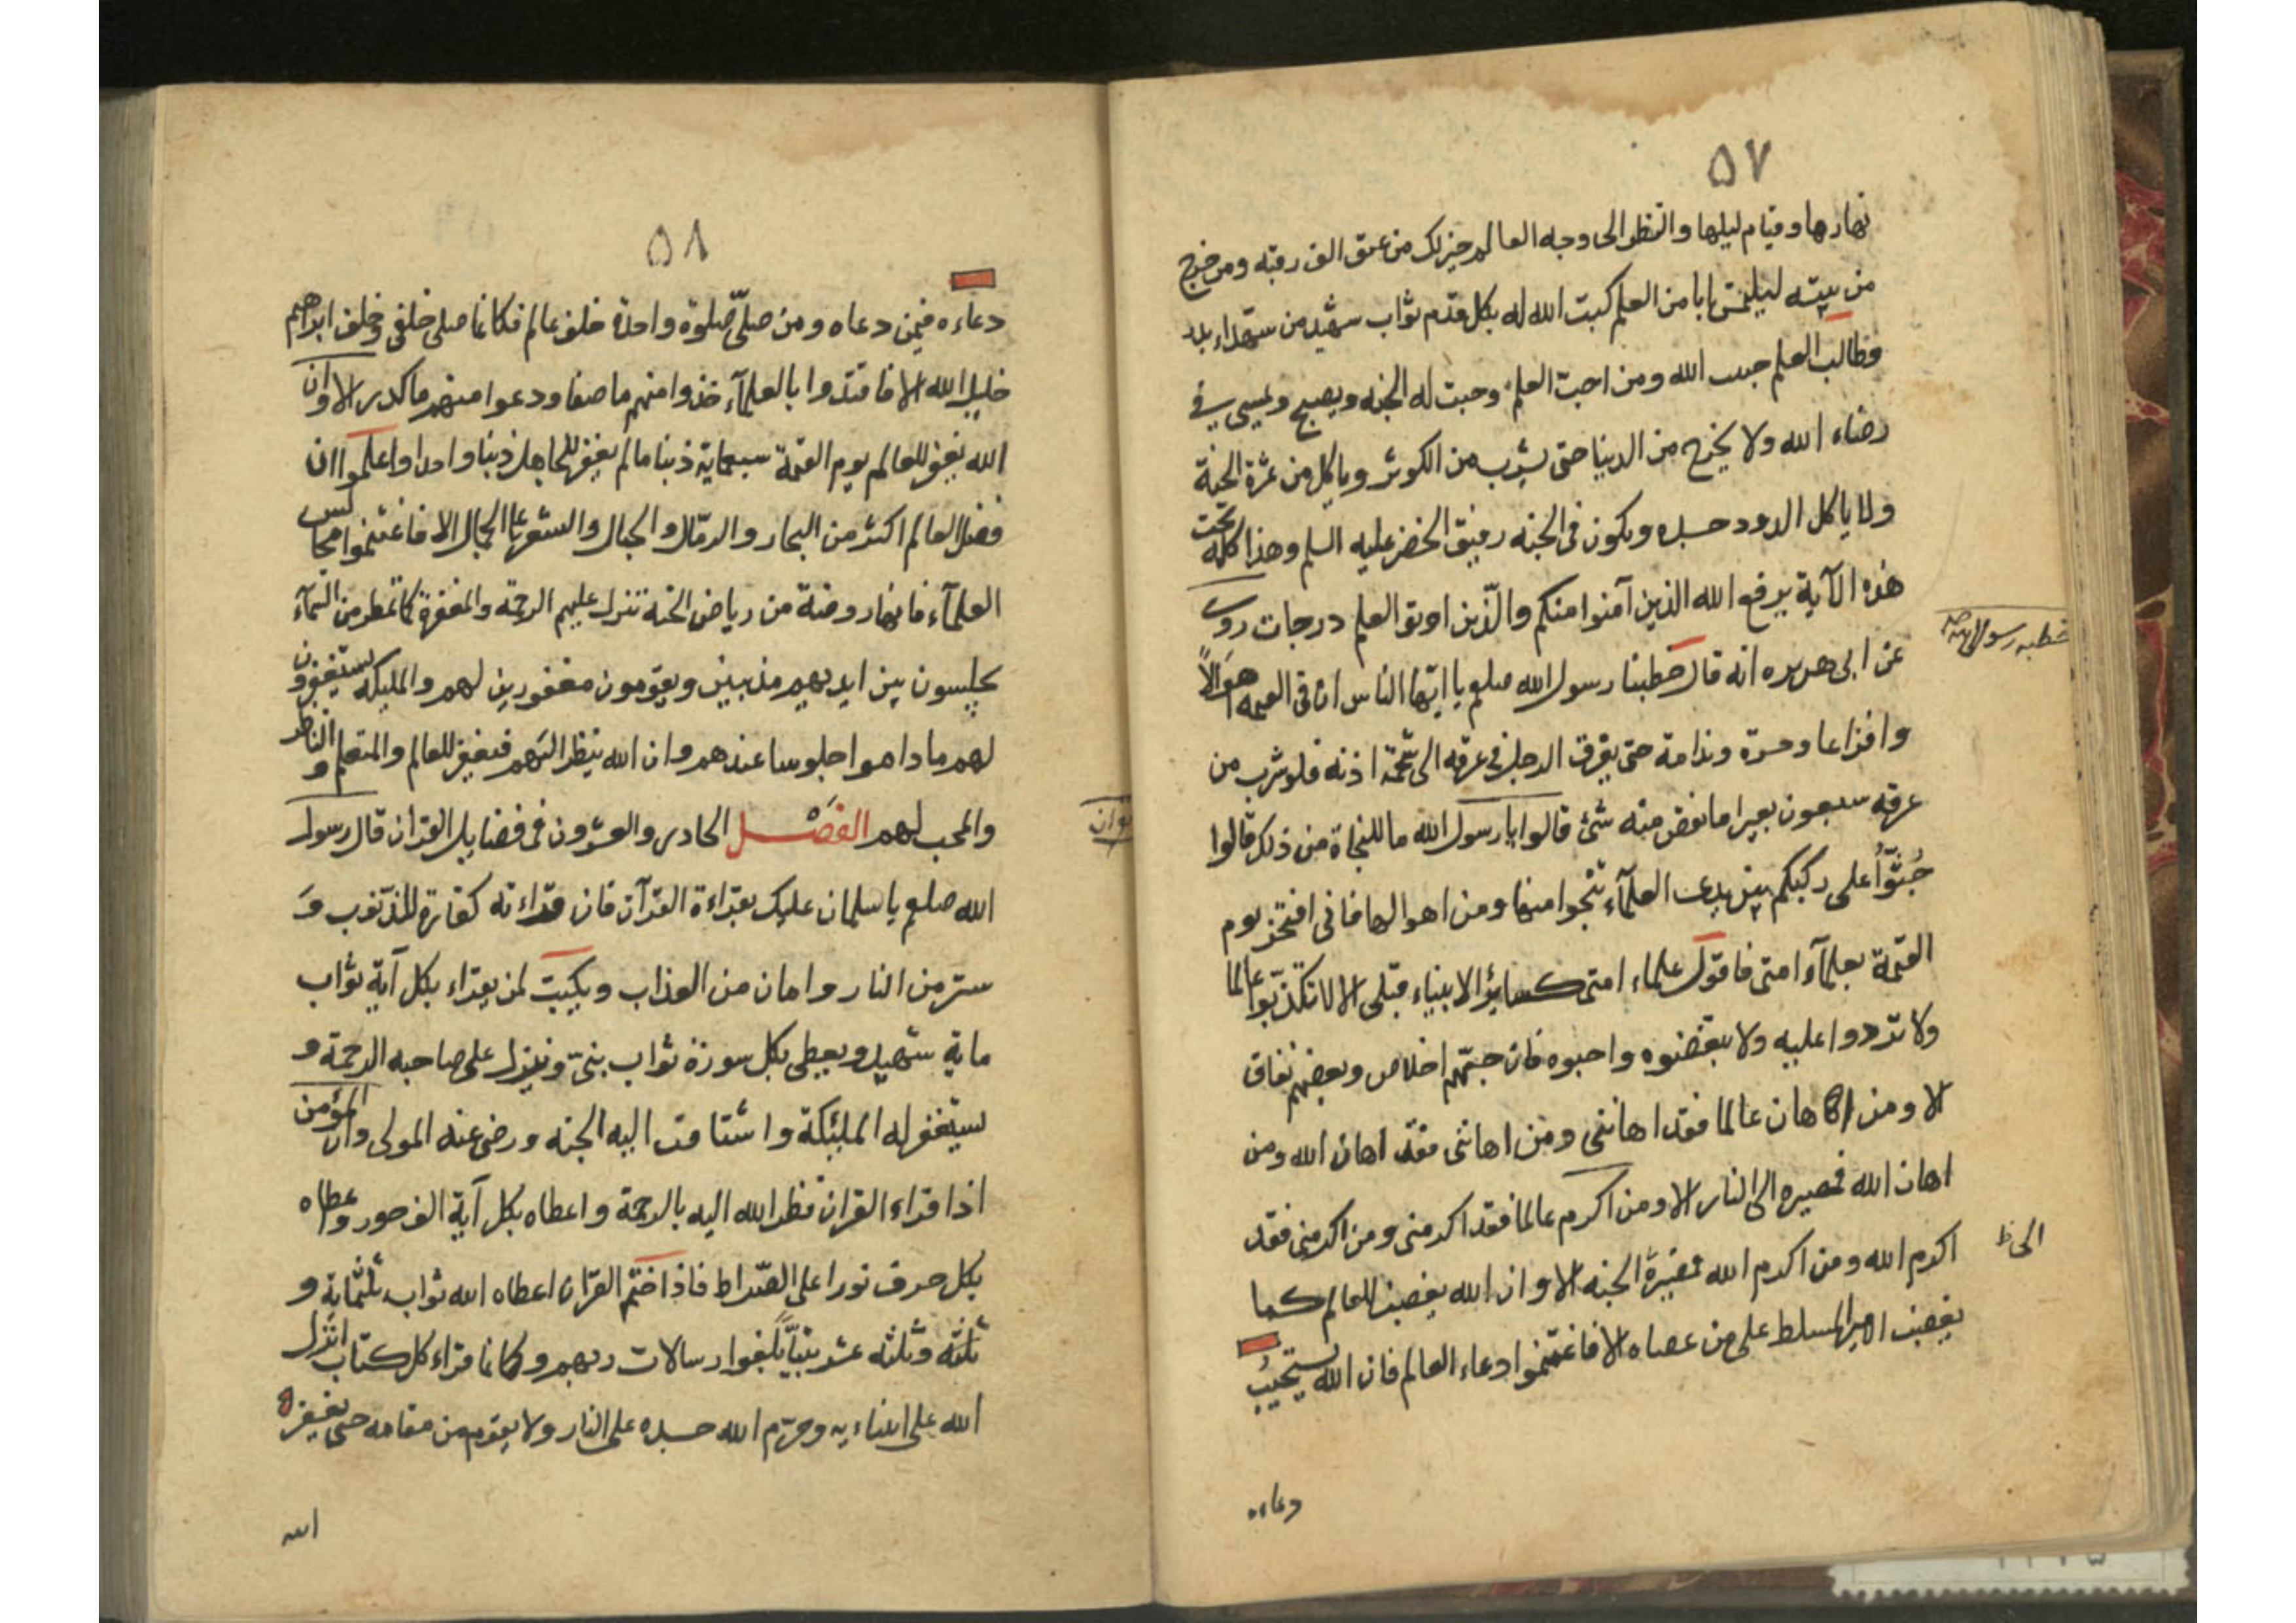 ٥٧
نهارها وقيام ليلها والنظر الى وجه العالم خير لك من عتق الف رقبة ومن خرج
من بيته ليلتمس بابا من العلم كتب الله له بكل قدم ثواب شهيد من شهداء بدر
وطالب العلم حبيب الله ومن احب العلم وجبت له الجنه ويصبح ويمسى فى
رضاء الله ولا يخرج من الدنيا حتى يشرب من الكوثر وياكل من ثمرة الجنة
ولا ياكل الدود جسده ويكون فى الجنه رفيق الخضر عليه السلم وهذا كله تحت
هذه الآية يرفع الله الذين آمنوا منكم والذين اوتو العلم درجات روى
عن ابى هريره انه قال خطبنا رسول الله صلعم يا ايها الناس ان فى القيمه اهوالاً
وافزاعا وحسرة وندامة حتى يغرق الرجل فى عرقه الى شحمة اذنه فلو شرب من
عرقه سبعون بعيرا ما نقص منه شئ قالوا يا رسول الله ما للنجاة من ذلك قالوا
جُثوّاً على ركبكم بين يدى العلمآء تنجوا منها ومن اهوالها فانى افتخر يوم
القيمة بعلمآء امتى فاقول علماء امتى كسائر الانبياء قبلى الا لا تكذبوا عالما
ولا تردوا عليه ولا تبغضوه واحبوه فان حبهم اخلاص وبغضهم نفاق
الا ومن اهان عالما فقد اهاننى ومن اهاننى فقد اهان الله ومن
اهان الله فمصيره الى النار الا ومن اكرم عالما فقد اكرمنى ومن اكرمنى فقد
اكرم الله ومن اكرم الله فمصيره الجنه الا وان الله يغضب للعالم كما
يغضب الامير المسلط على من عصاه الا فاغتنموا دعاء العالم فان الله يستجيبُ
دعاءه
خطبه رسول الله
الى ظ
٥٨
دعاءه فيمن دعاه ومن صلّى صلوة واحدة خلف عالم فكانما صلى خلفى وخلف ابراهيم
خليل الله الا فاقتدوا بالعلمآء خذوا منهم ما صفا ودعوا منهم ما كدر الا وان
الله يغفر للعالم يوم القيمة سبعماية ذنبا ما لم يغفر للجاهل ذنبا واحدا واعلموا ان
فضل العالم اكثر من البحار والرمال والجبال والشعر على الجمال الا فاغتنموا مجالس
العلمآء فانها روضة من رياض الجنه تنزل عليهم الرحمة والمغفرة كما تمطر من السمآء
يجلسون بين ايديهم مذنبين ويقومون مغفورين لهم والمليكه يستغفرون
لهم ما داموا جلوسا عندهم وان الله ينظر اليهم فيغفر للعالم والمتعلم والناظر
والمحب لهم الفصل الحادى والعشرون فى فضايل القران قال رسول
الله صلعم يا سلمان عليك بقراءة القرآن فان قراءته كفارة للذنوب وَ
ستر من النار وامان من العذاب ويكتب لمن يقراء بكل آية ثواب
ماية شهيد ويعطى بكل سورة ثواب نبىّ وينزل على صاحبه الرحمة و
يستغفر له المليئكة واشتاقت اليه الجنه ورضى عنه المولى وان المؤمن
اذا قراء القران نظر الله اليه بالرحمة واعطاه بكل آية الف حور واعطاه
بكل حرف نورا على الصراط فاذا ختم القران اعطاه الله ثواب ثلثماية و
ثلثة وثلثه عشر نبيّاً بلغوا رسالات ربهم وكانما قراء كل كتاب انزل
الله على انبياءيه وحرّم الله جسده على النار ولا يقوم من مقامه حتى يغفر
الله